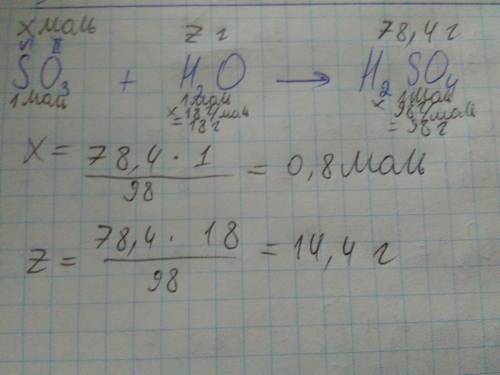 x моль z г 78,4 г
VI II
SO₃ + H₂O → H₂SO₄
1 моль 1 моль 1 моль
x 18 г/моль x 98 г/моль
= 18 г = 98 г
X = 78,4 · 1 / 98 = 0,8 моль
z = 78,4 · 18 / 98 = 14,4 г